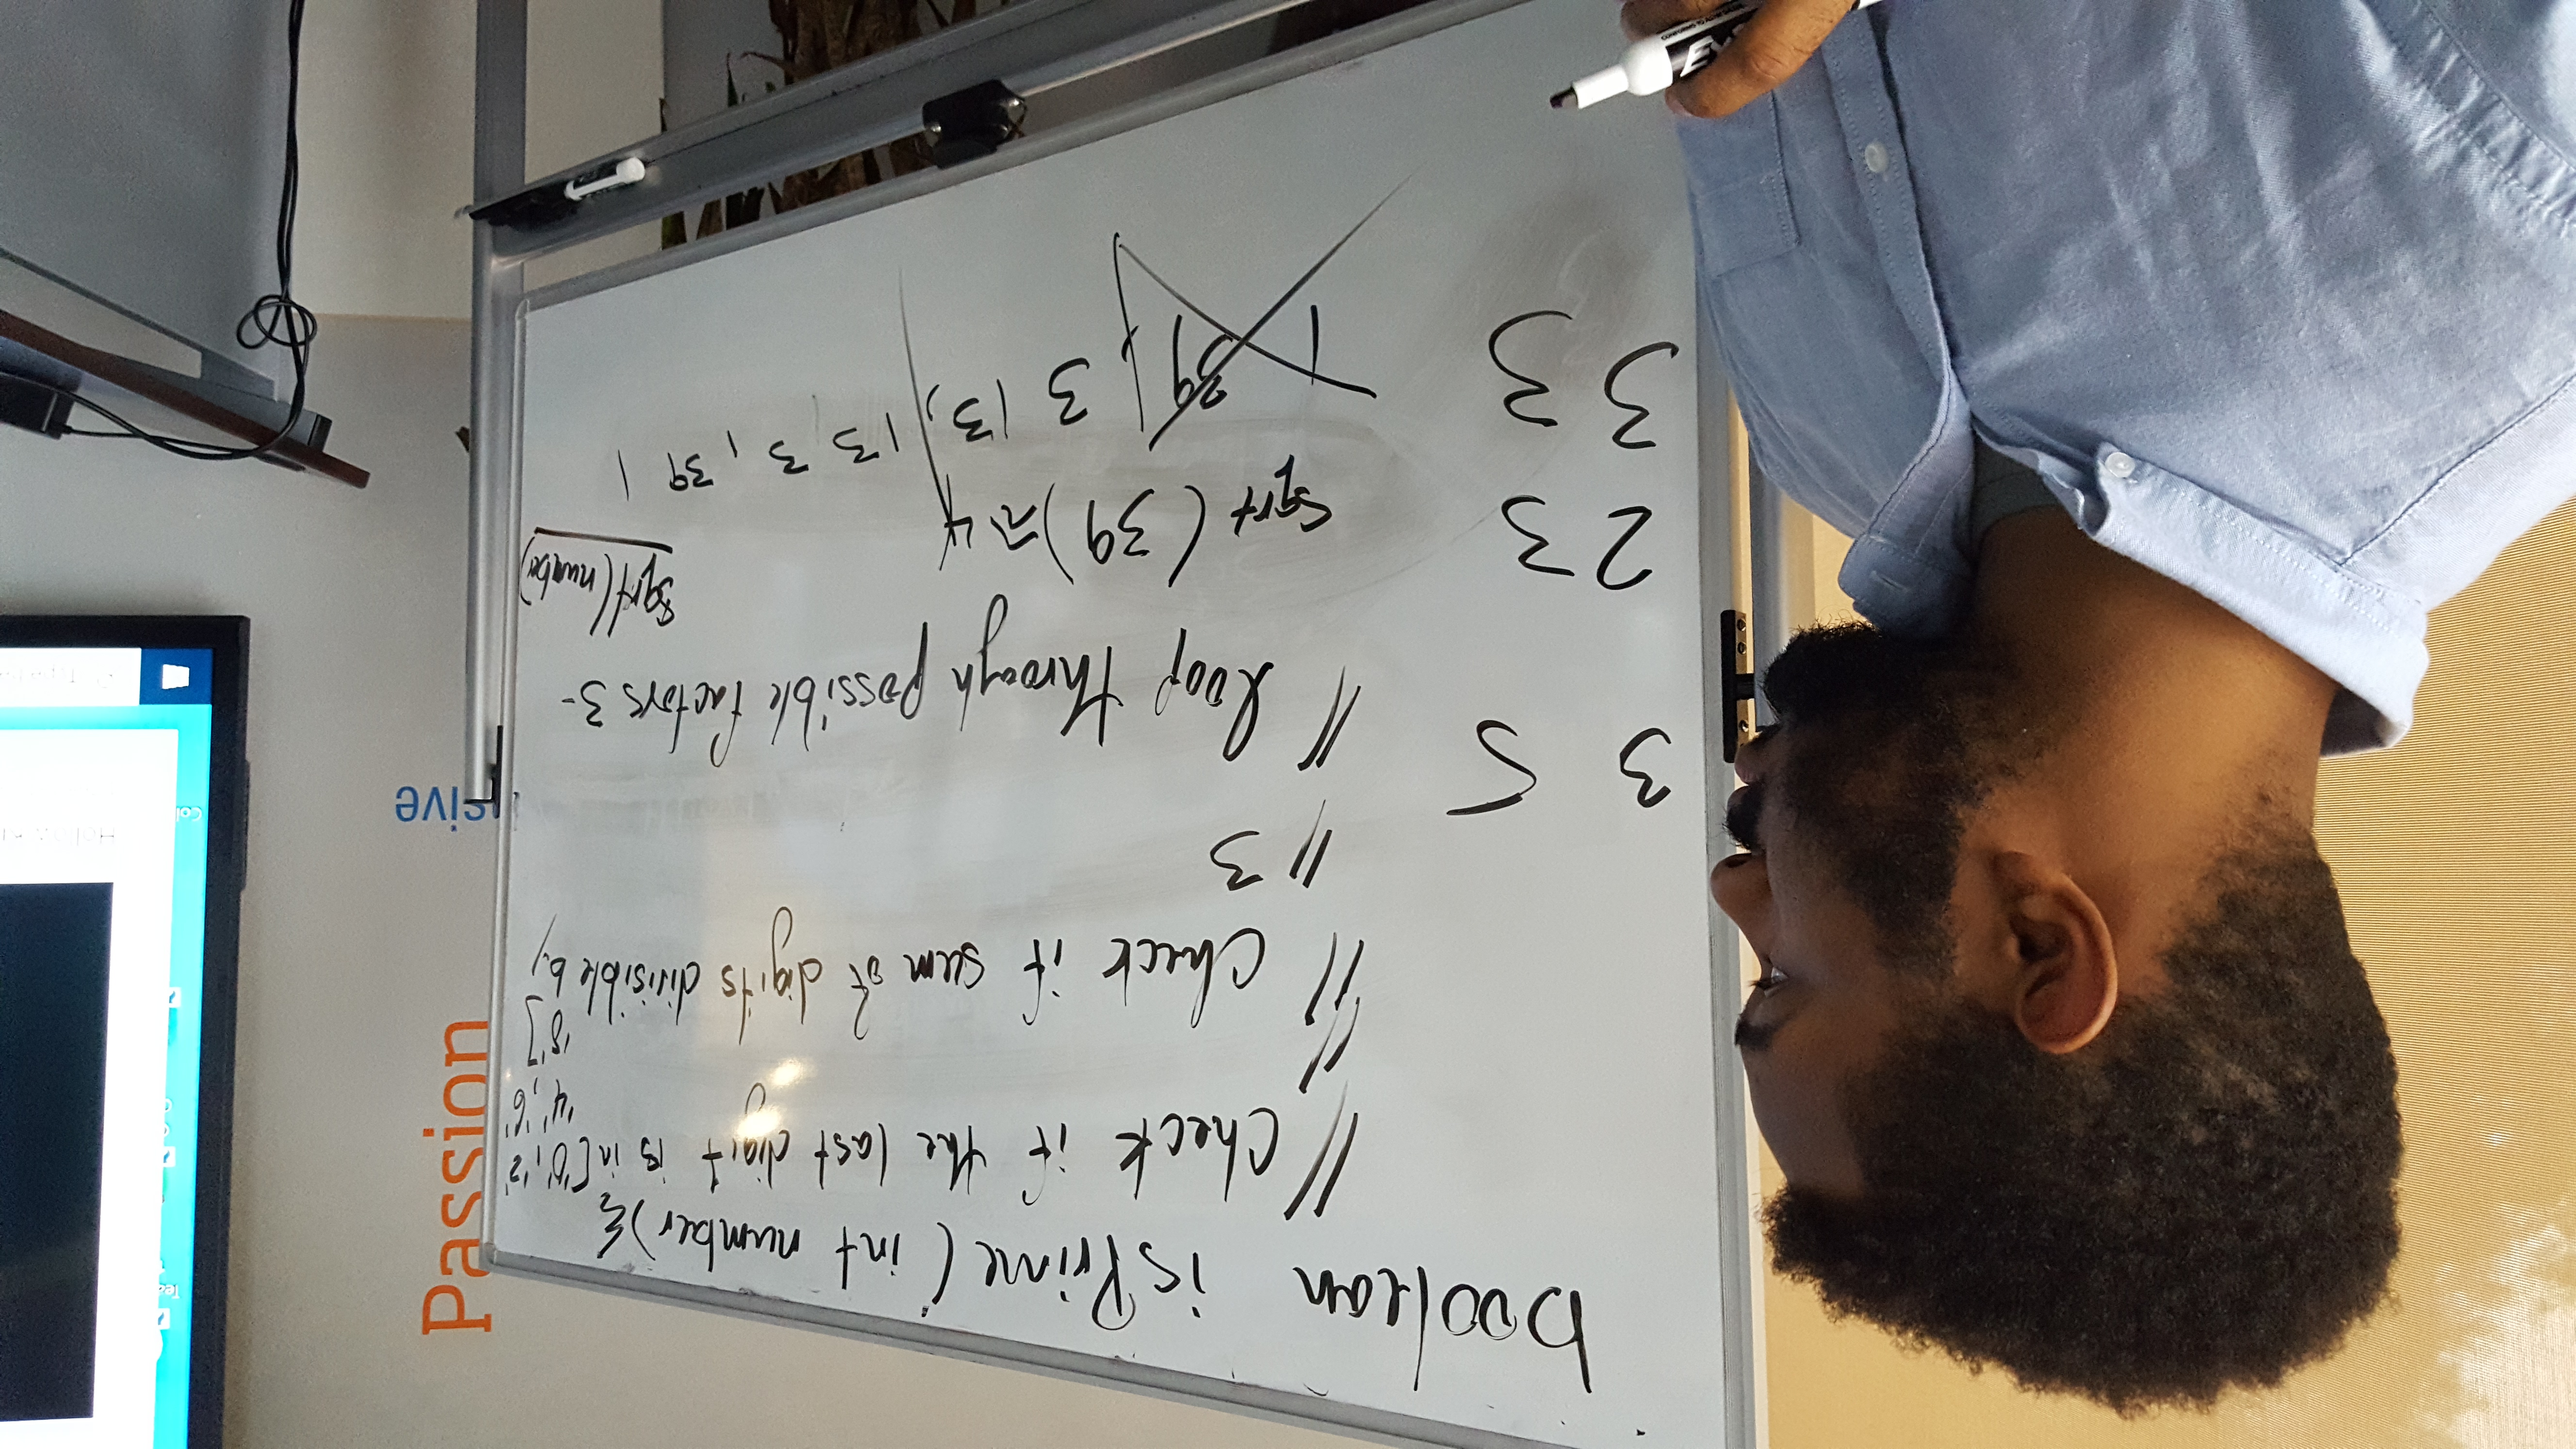 boolean isPrime(int number){
// Check if the last digit is in ['0','2'
'4','6'
'8']
//
// Check if sum of digits divisible by
// 3
3 5
// loop through possible factors 3-
sqrt(number)
23
sqrt(39)≈4
33
1 39, 3 13, 13 3, 39 1
Passion
sive
Col